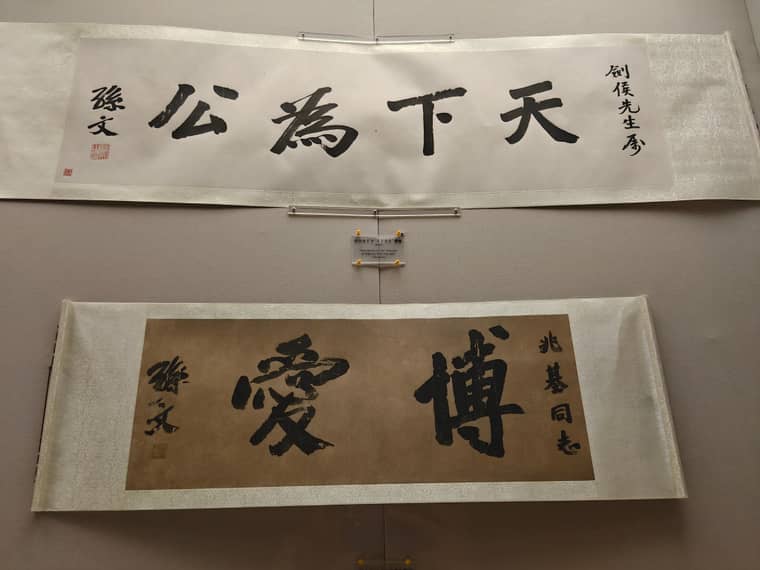 劍侯先生属
天下為公
孫文
兆基同志
博愛
孫文